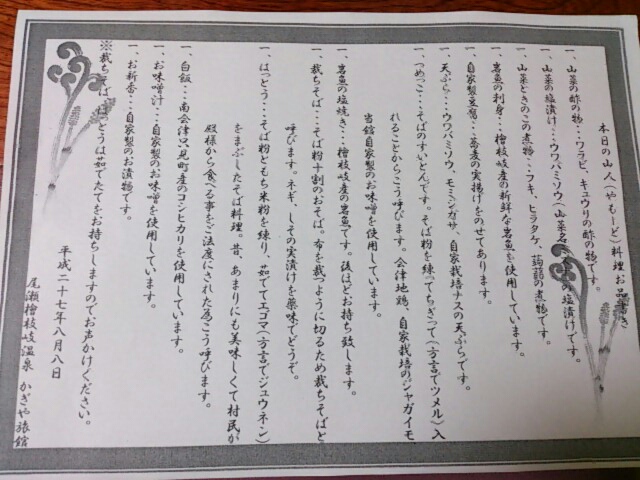 本日の山人(やもーど)料理お品書き
一、山菜の酢の物・・・ワラビ、キュウリの酢の物です。
一、山菜の塩漬け・・・ウワバミソウ(山菜名 の塩漬けです。
一、山菜ときのこの煮物・・・フキ、ヒラタケ、蒟蒻の煮物です。
一、岩魚の刺身・・・檜枝岐産の新鮮な岩魚を使用しています。
一、自家製豆腐・・・蕎麦の実揚げをのせてあります。
一、天ぷら・・・ウワバミソウ、モミジガサ、自家栽培ナスの天ぷらです。
一、つめっこ・・・そばのすいとんです。そば粉を練ってちぎって(方言でツメル)入
れることからこう呼びます。会津地鶏、自家栽培のジャガイモ、
当舘自家製のお味噌を使用しています。
一、岩魚の塩焼き・・・檜枝岐産の岩魚です。後ほどお持ち致します。
一、裁ちそば・・・そば粉十割のおそば。布を裁つように切るため裁ちそばと
呼びます。ネギ、しその実漬けを薬味でどうぞ。
一、はっとう・・・そば粉ともち米粉を練り、茹でてエゴマ(方言でジュウネン)
をまぶしたそば料理。昔、あまりにも美味しくて村民が
殿様から食べる事をご法度にされた為こう呼びます。
一、白飯・・・南会津只見町産のコシヒカリを使用しています。
一、お味噌汁・・・自家製のお味噌を使用しています。
一、お新香・・・自家製のお漬物です。
※裁ちそば、はっとうは茹でたてをお持ちしますのでお声かけください。
平成二十七年八月八日
尾瀬檜枝岐温泉 かぎや旅館